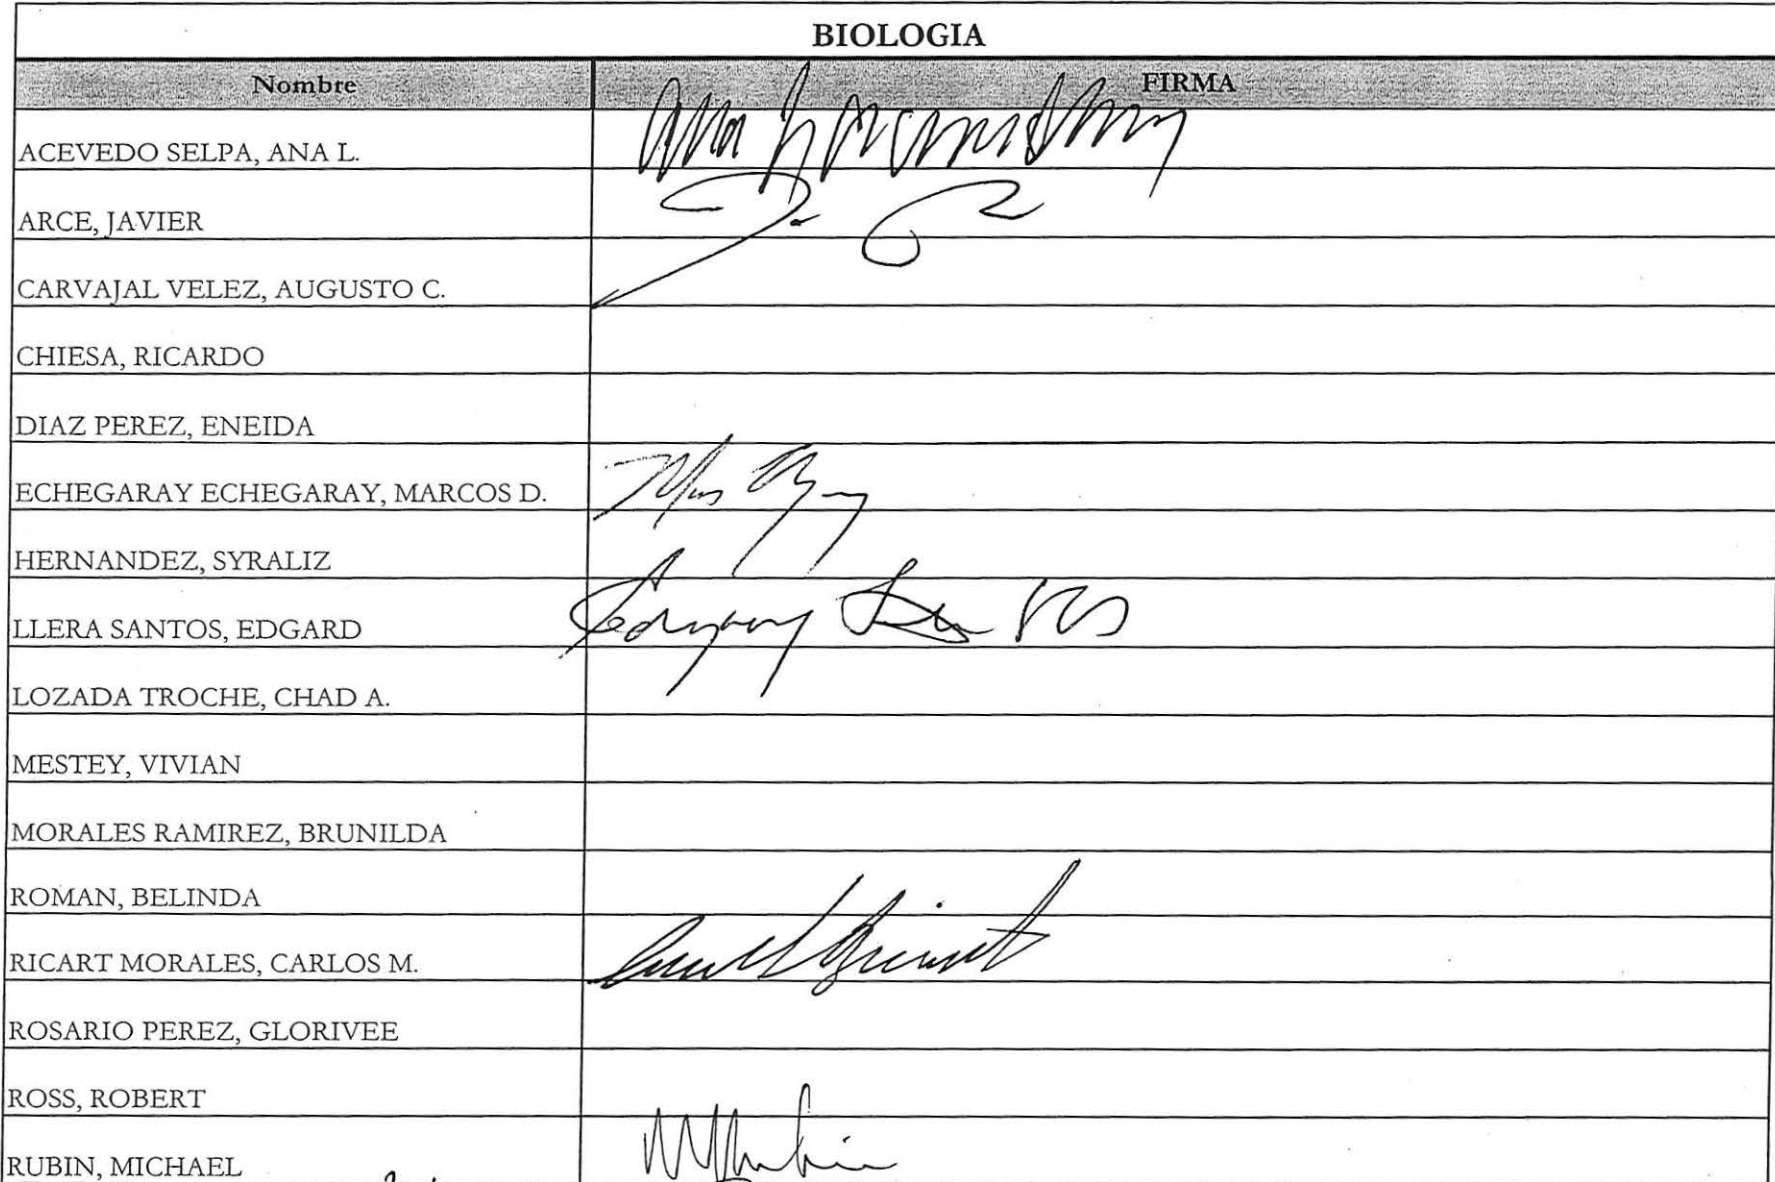 BIOLOGIA
Nombre FIRMA
ACEVEDO SELPA, ANA L. Ana L
ARCE, JAVIER
CARVAJAL VELEZ, AUGUSTO C.
CHIESA, RICARDO
DIAZ PEREZ, ENEIDA
ECHEGARAY ECHEGARAY, MARCOS D.
HERNANDEZ, SYRALIZ
LLERA SANTOS, EDGARD
LOZADA TROCHE, CHAD A.
MESTEY, VIVIAN
MORALES RAMIREZ, BRUNILDA
ROMAN, BELINDA
RICART MORALES, CARLOS M.
ROSARIO PEREZ, GLORIVEE
ROSS, ROBERT
RUBIN, MICHAEL